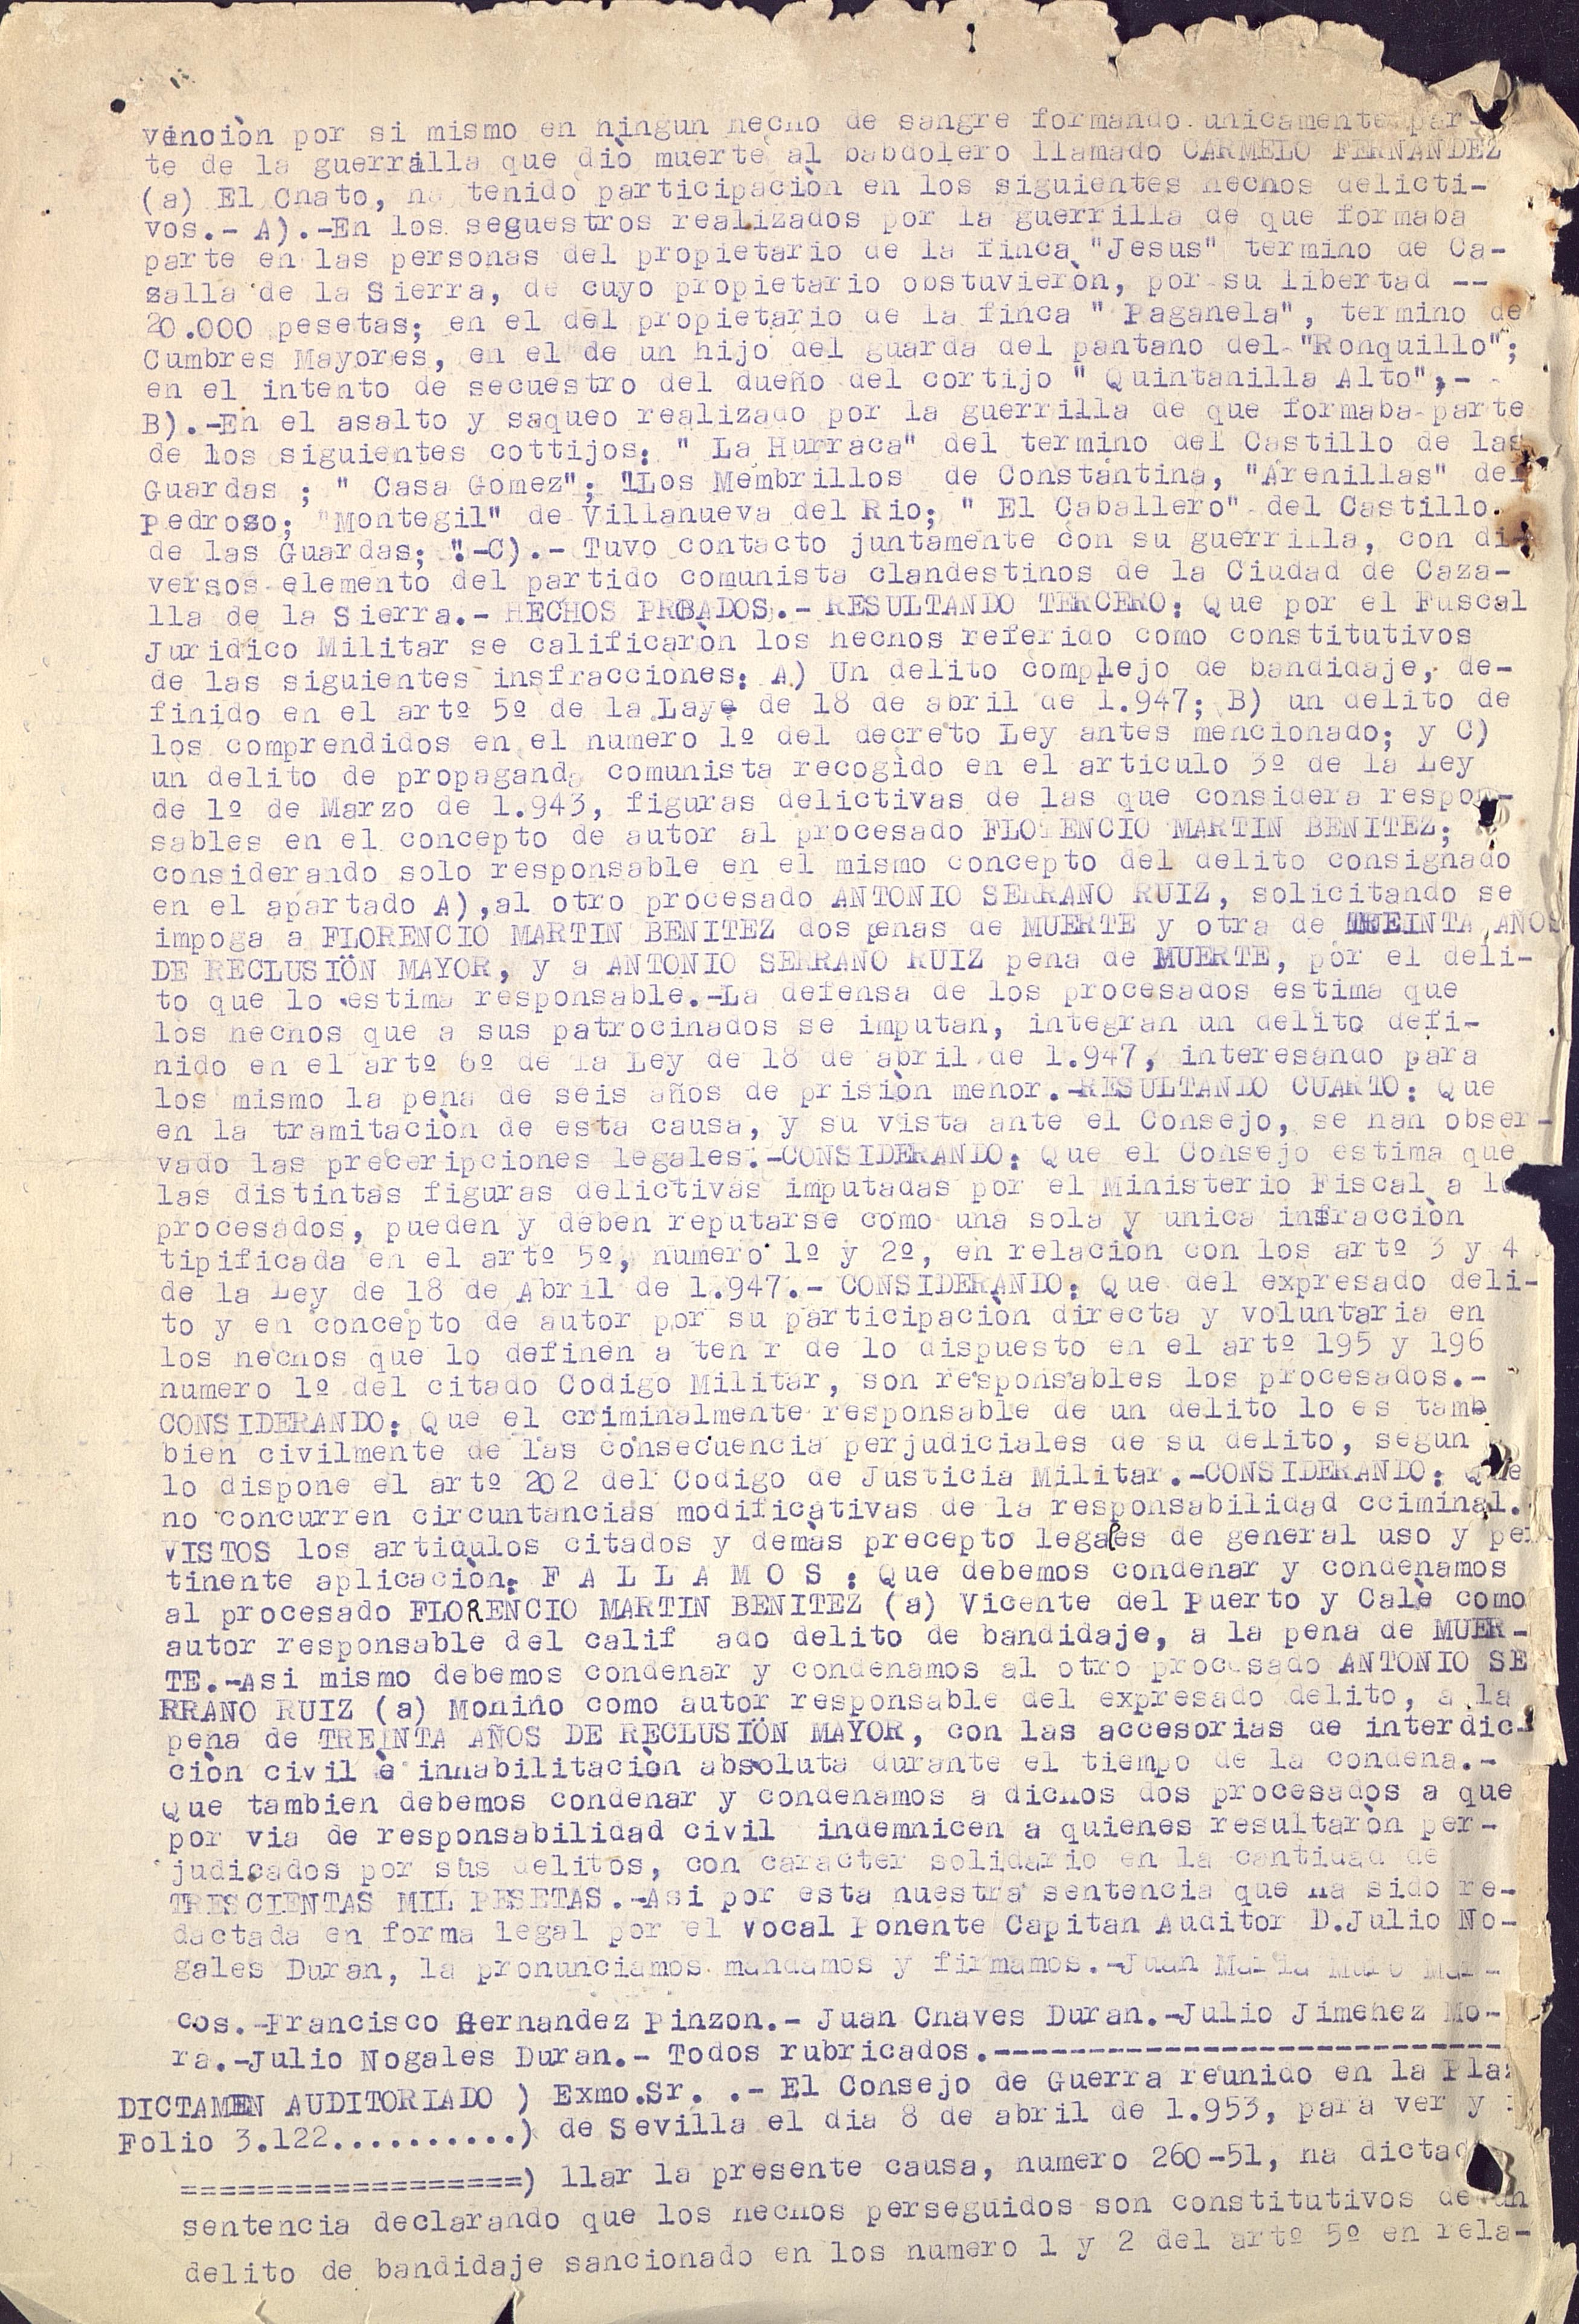 vención por si mismo en ningun hecho de sangre formando unicamente par
te de la guerrilla que diò muerte al babdolero llamado CARMELO FERNANDEZ
(a) El Chato, ha tenido participaciòn en los siguientes hechos delicti-
vos.- A).-En los seguestros realizados por la guerrilla de que formaba
parte en las personas del propietario de la finca "Jesus" termino de Ca-
salla de la Sierra, de cuyo propietario obstuvieròn, por su libertad --
20.000 pesetas; en el del propietario de la finca " Paganela", termino de
Cumbres Mayores, en el de un hijo del guarda del pantano del "Ronquillo";
en el intento de secuestro del dueño del cortijo " Quintanilla Alto",-
B).-En el asalto y saqueo realizado por la guerrilla de que formaba parte
de los siguientes cottijos: " La Hurraca" del termino del Castillo de las
Guardas ; " Casa Gomez"; "Los Membrillos de Constantina, "Arenillas" del
Pedroso; "Montegil" de Villanueva del Rio; " El Caballero" del Castillo.
de las Guardas; ".-C).- Tuvo contacto juntamente con su guerrilla, con di-
versos elemento del partido comunista clandestinos de la Ciudad de Caza-
lla de la Sierra.- HECHOS PROBADOS.- RESULTANDO TERCERO: Que por el Fuscal
Juridico Militar se calificaròn los hechos referido como constitutivos
de las siguientes insfracciones: A) Un delito complejo de bandidaje, de-
finido en el artº 5º de la Laye de 18 de abril de 1.947; B) un delito de
los comprendidos en el numero 1º del decreto Ley antes mencionado; y C)
un delito de propaganda comunista recogido en el articulo 3º de la Ley
de 1º de Marzo de 1.943, figuras delictivas de las que considera respon-
sables en el concepto de autor al procesado FLORENCIO MARTIN BENITEZ;
considerando solo responsable en el mismo concepto del delito consignado
en el apartado A),al otro procesado ANTONIO SERRANO RUIZ, solicitando se
impoga a FLORENCIO MARTIN BENITEZ dos penas de MUERTE y otra de TREINTA AÑOS
DE RECLUSIÖN MAYOR, y a ANTONIO SERRANO RUIZ pena de MUERTE, pòr el deli-
to que lo estima responsable.-La defensa de los procesados estima que
los hechos que a sus patrocinados se imputan, integran un delito defi-
nido en el artº 6º de la Ley de 18 de abril de 1.947, interesando para
los mismo la pena de seis años de prisiòn menor.-RESULTANDO CUARTO: Que
en la tramitaciòn de esta causa, y su vista ante el Consejo, se han obser-
vado las preceripciones legales.-CONSIDERANDO: Que el Consejo estima que
las distintas figuras delictivas imputadas por el Ministerio Fiscal a
procesados, pueden y deben reputarse como una sola y unica infracciòn
tipificada en el artº 5º, numero 1º y 2º, en relaciòn con los artº 3 y 4
de la Ley de 18 de Abril de 1.947.- CONSIDERANDO: Que del expresado deli-
to y en concepto de autor por su participaciòn directa y voluntaria en
los hechos que lo definen a ten r de lo dispuesto en el artº 195 y 196
numero 1º del citado Codigo Militar, son responsables los procesados.-
CONSIDERANDO: Que el criminalmente responsable de un delito lo es tamb
bien civilmente de las consecuencia perjudiciales de su delito, segun
lo dispone el artº 202 del Codigo de Justicia Militar.-CONSIDERANDO: Que
no concurren circuntancias modificativas de la responsabilidad cciminal.
VISTOS los artiqulos citados y demàs precepto legales de general uso y per
tinente aplicaciòn: F A L L A M O S : Que debemos condenar y condenamos
al procesado FLORENCIO MARTIN BENITEZ (a) Vicente del Puerto y Calè como
autor responsable del calif ado delito de bandidaje, a la pena de MUER-
TE.-Asi mismo debemos condenar y condenamos al otro procesado ANTONIO SE
RRANO RUIZ (a) Moniño como autor responsable del expresado delito, a la
pena de TREINTA AÑOS DE RECLUSIÖN MAYOR, con las accesorias de interdic-
ciòn civil è inhabilitaciòn absoluta durante el tiempo de la condena.-
Que tambien debemos condenar y condenamos a dichos dos procesados a que
por via de responsabilidad civil indemnicen a quienes resultaròn per-
judicados por sus delitos, con caracter solidario en la cantidad de
TRESCIENTAS MIL PESETAS.-Asi por esta nuestra sentencia que ha sido re-
dactada en forma legal por el Vocal Ponente Capitan Auditor D.Julio No-
gales Duran, la pronunciamos mandamos y firmamos.-Juan Maria Muro Mar-
cos.-Francisco Hernandez Pinzon.- Juan Chaves Duran.-Julio Jimenez Mo-
ra.-Julio Nogales Duran.- Todos rubricados.---------------------------
DICTAMEN AUDITORIADO ) Exmo.Sr. .- El Consejo de Guerra reunido en la Plaz
Folio 3.122..........) de Sevilla el dia 8 de abril de 1.953, para ver y
==================) llar la presente causa, numero 260-51, ha dictad
sentencia declarando que los hechos perseguidos son constitutivos de un
delito de bandidaje sancionado en los numero 1 y 2 del artº 5º en rela-